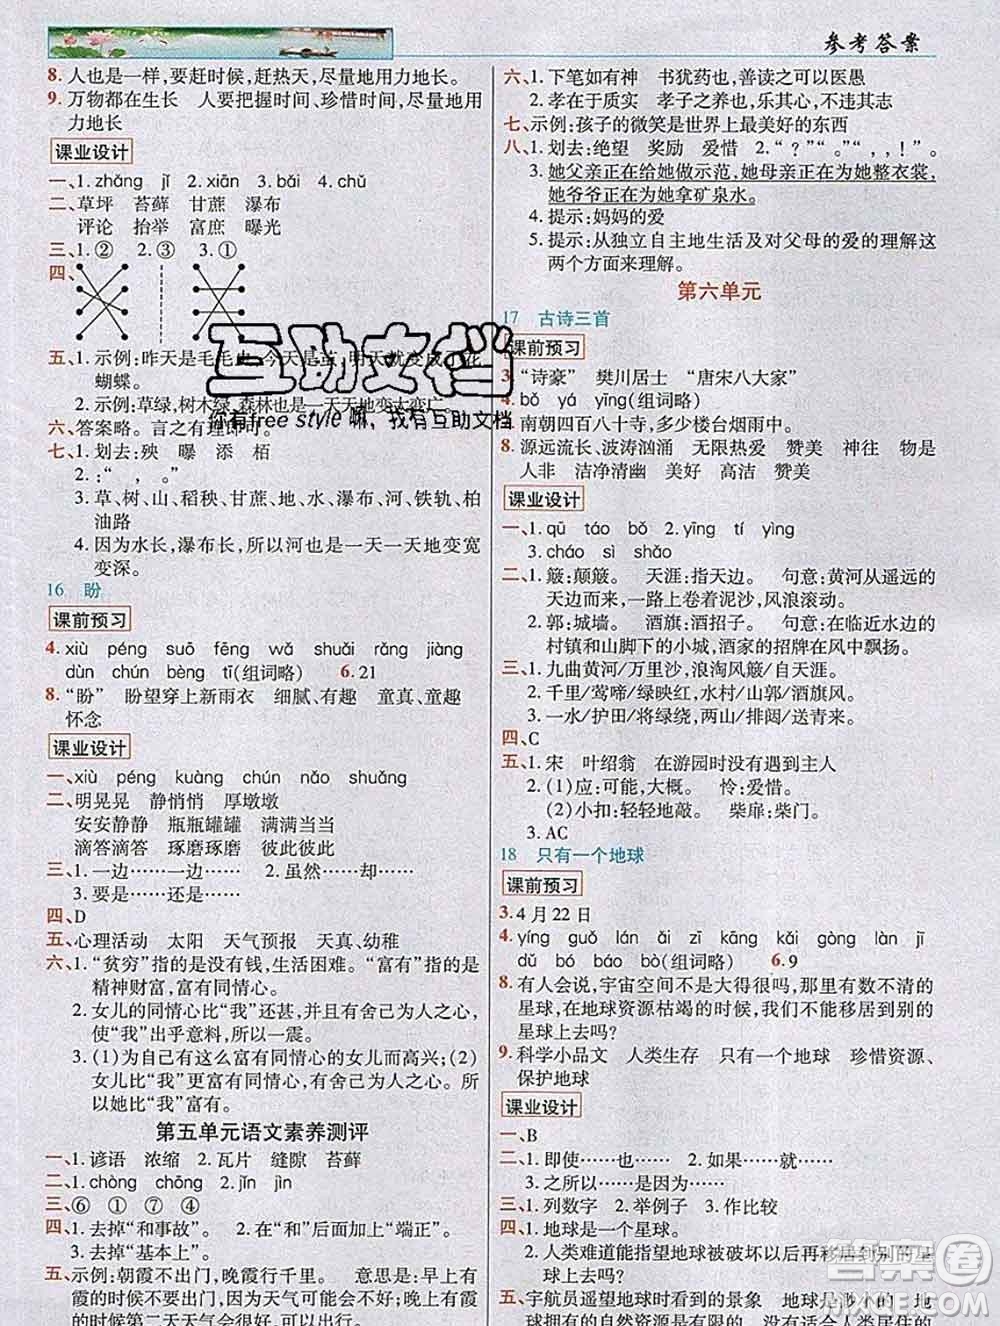 参考答案
8. 人也是一样,要赶时候,赶热天,尽量地用力地长。
9. 万物都在生长 人要把握时间、珍惜时间,尽量地用
力地长
课业设计
一、1. zhǎng jǐ 2. xiān 3. bǎi 4. chǔ
二、草坪 苔藓 甘蔗 瀑布
评论 抬举 富庶 曝光
三、1. ② 2. ③ 3. ①
四、
五、1. 示例:昨天是毛毛虫,今天是
蝴蝶。
2. 示例:草绿,树木绿,森林也是一天天地变大变广。
六、答案略。言之有理即可。
七、1. 划去:殃 曝 添 栢
2. :“ , ”
3. 草、树、山、稻秧、甘蔗、地、水、瀑布、河、铁轨、柏
油路
4. 因为水长,瀑布长,所以河也是一天一天地变宽
变深。
16 盼
课前预习
4. xiù péng sōu fēng wǎ shuǎi rǎng jiàng
dùn chún bèng tì(组词略) 6. 21
8. “盼” 盼望穿上新雨衣 细腻、有趣 童真、童趣
怀念
课业设计
一、xiù péng kuàng chún nǎo shuāng
二、明晃晃 静悄悄 厚墩墩
安安静静 瓶瓶罐罐 满满当当
滴答滴答 琢磨琢磨 彼此彼此
三、1. 一边……一边…… 2. 虽然……
3. 要是……还是……
四、D
五、心理活动 太阳 天气预报 天真、幼稚
六、1. “贫穷”指的是没有钱,生活困难。“富有”指的是
精神财富,富有同情心。
2. 女儿的同情心比“我”还甚,并付出了行动,与之
相比,“我”出乎意料,所以一震。
3. (1)为自己有这么富有同情心的女儿而高兴;(2)
女儿比“我”更富有同情心,并付出行动去关心人,
所以她比“我”富有。
第五单元语文素养测评
一、1. 谚语 浓缩 2. 瓦片 缝隙 苔藓
二、1. chòng chōng 2. jǐn jìn
三、⑥ ① ⑦ ④
四、1. 去掉“和事故”。 2. 在“和”后面加上“端正”。
3. 去掉“基本上”。
五、示例:朝霞不出门,晚霞行千里。 意思是:早上有
朝霞,说明当天天气不好;而晚上有晚霞的时
候第二天天气会很好,可以出门。
六、1. 下笔如有神 书犹药也,善读之可以医愚
2. 孝在于质实 孝子之养也,乐其心,不违其志
七、示例:孩子的微笑是世界上最美好的东西
八、1. 划去:绝望 奖励 爱惜 2. “ ? ”“ , , ! ”。
3. 她父亲正在给她做示范,她母亲正在为她整衣裳,
她爷爷正在为她拿矿泉水。
4. 提示:妈妈的爱
5. 提示:从独立自主地生活及对父母的爱的理解这
两个方面来理解。
第六单元
17 古诗三首
课前预习
3. “诗豪” 樊川居士 “唐宋八大家”
4. bǒ yá yīng(组词略)
7. 南朝四百八十寺,多少楼台烟雨中。
8. 源远流长、波涛汹涌 无限热爱 赞美 物是
人非 洁净清幽 美好 高洁 赞美
课业设计
一、1. qū táo bǒ 2. yīng tí yìng
3. cháo sì shǎo
二、1. 簸:颠簸。 天涯:指天边。 句意:黄河从遥远的
天边而来,一路上卷着泥沙,风浪滚动。
2. 郭:城墙。 酒旗:酒招子。 句意:在临近水边的
村镇和山脚下的小城,酒家的旗帜在风中飘扬。
三、1. 九曲黄河/万里沙,浪淘风簸/自天涯。
2. 千里/莺啼/绿映红,水村/山郭/酒旗风。
3. 一水/护田/将绿绕,两山/排闼/送青来。
四、C
五、1. 宋 叶绍翁 在游园时没有遇到主人
2. (1)应:可能,大概。 怜:爱惜。
(2)小扣:轻轻地敲。 柴扉:柴门。
3. AC
18 只有一个地球
课前预习
3. 4月22日
4. yíng guǒ lán ǎi zī kāng kǎi gòng làn jī
dǔ bó báo bò(组词略) 6. 9
8. 有人会说,宇宙空间不是大得很吗,那里有数不清的
星球,在地球资源枯竭的时候,我们不能移居到别的
星球上去吗?
9. 科学小品文 人类生存 只有一个地球 珍惜资源、
保护地球
课业设计
一、B
二、1. 即使……也…… 2. 如果……就……
3. 之所以……是因为……
三、1. 列数字 2. 举例子 3. 作比较
四、1. 地球是一个星球。
2. 人类难道能指望地球被破坏以后再移居到别的星
球上去吗?
五、宇航员遨游太空时看到的景象 地球是渺小的 人类
的自然资源是有限的 没有适合人类居住的
互助文档
你有free style嘛,我有互助文档
答案圈